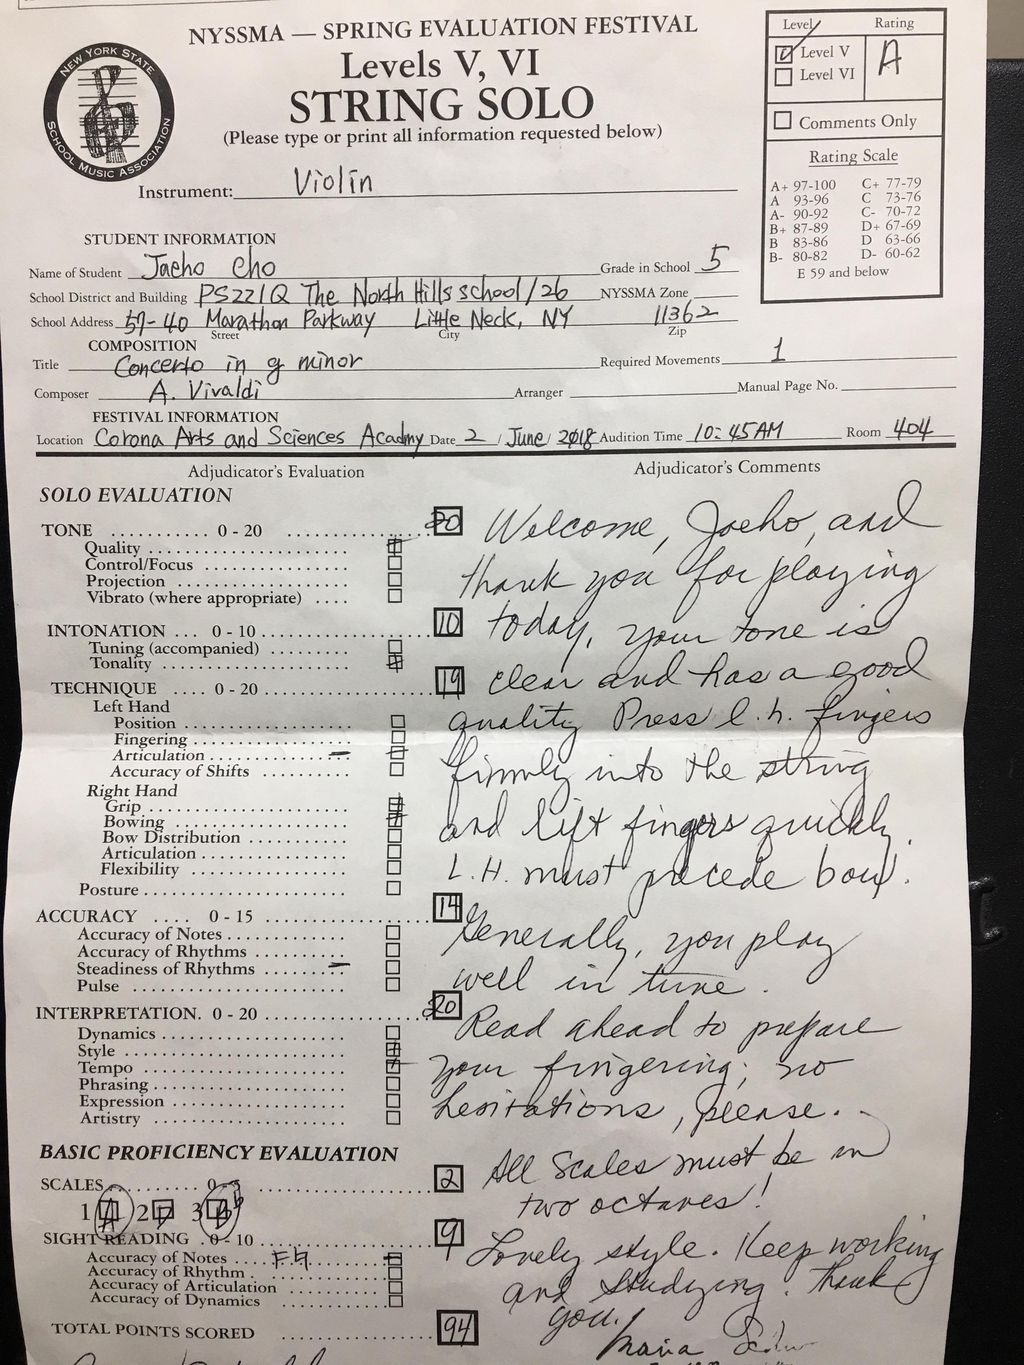 NYSSMA — SPRING EVALUATION FESTIVAL
Levels V, VI
STRING SOLO
(Please type or print all information requested below)
NEW YORK STATE
SCHOOL MUSIC ASSOCIATION
Level Rating
Level V A
Level VI
Comments Only
Rating Scale
A+ 97-100 C+ 77-79
A 93-96 C 73-76
A- 90-92 C- 70-72
B+ 87-89 D+ 67-69
B 83-86 D 63-66
B- 80-82 D- 60-62
E 59 and below
Instrument: Violin
STUDENT INFORMATION
Name of Student Jaeho Cho Grade in School 5
School District and Building PS221Q The North Hills school/26 NYSSMA Zone
School Address 57-40 Marathon Parkway Little Neck, NY 11362
Street City Zip
COMPOSITION
Title Concerto in g minor Required Movements 1
Composer A. Vivaldi Arranger Manual Page No.
FESTIVAL INFORMATION
Location Corona Arts and Sciences Acadmy Date 2 / June / 2018 Audition Time 10:45AM Room 404
Adjudicator's Evaluation Adjudicator's Comments
SOLO EVALUATION
TONE ........... 0 - 20 20
Quality
Control/Focus
Projection
Vibrato (where appropriate)
INTONATION ... 0 - 10 10
Tuning (accompanied)
Tonality
TECHNIQUE .... 0 - 20 19
Left Hand
Position
Fingering
Articulation
Accuracy of Shifts
Right Hand
Grip
Bowing
Bow Distribution
Articulation
Flexibility
Posture
ACCURACY .... 0 - 15 14
Accuracy of Notes
Accuracy of Rhythms
Steadiness of Rhythms
Pulse
INTERPRETATION. 0 - 20 20
Dynamics
Style
Tempo
Phrasing
Expression
Artistry
BASIC PROFICIENCY EVALUATION
SCALES 2
1 2 3
SIGHT READING . 0 - 10 9
Accuracy of Notes
Accuracy of Rhythm
Accuracy of Articulation
Accuracy of Dynamics
TOTAL POINTS SCORED 94
Welcome, Jaeho, and
thank you for playing
today, your tone is
clear and has a good
quality Press l.h. fingers
firmly into the string
and lift fingers quickly.
L.H. must precede bow.
Generally, you play
well in tune.
Read ahead to prepare
your fingering; no
hesitations, please.
All Scales must be in
two octaves!
Lovely style. Keep working
and studying. Thank
you.
Maria